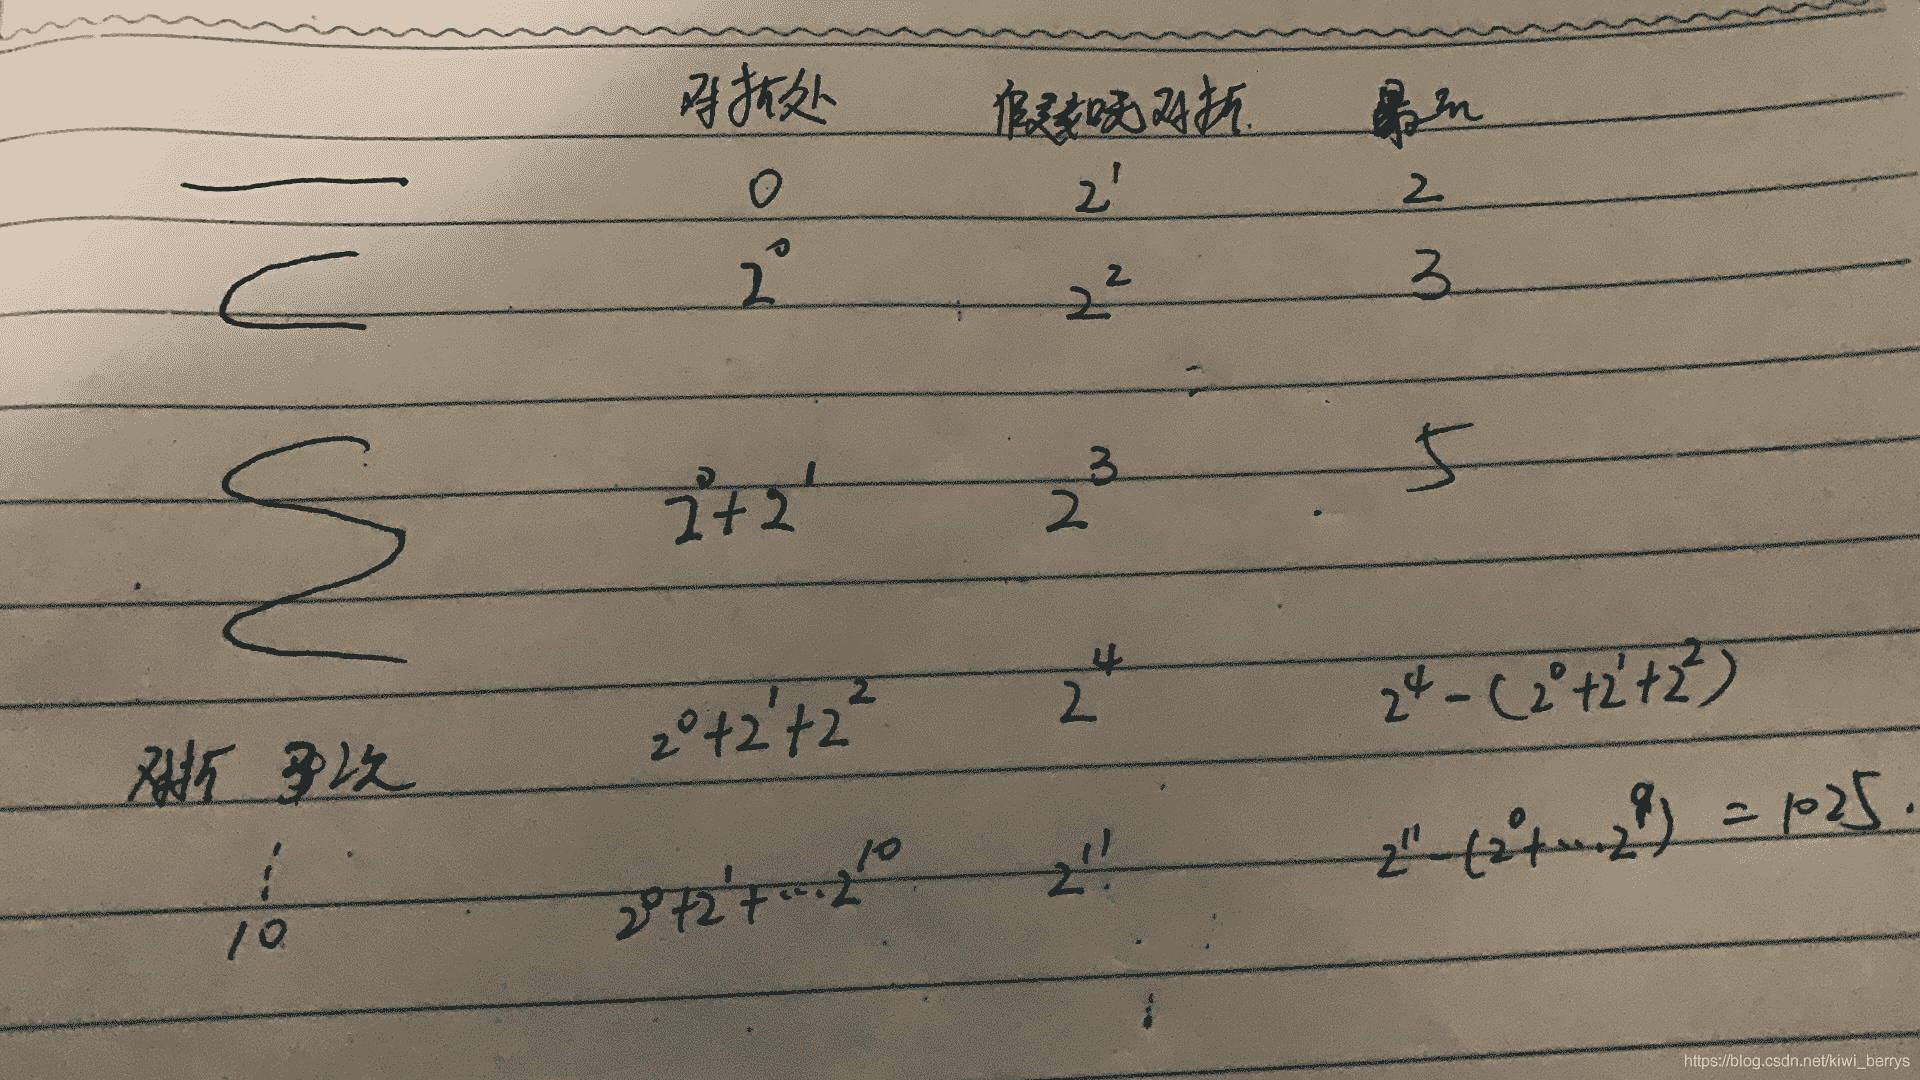 对折处 假设没对折 m
0 2¹ 2
2⁰ 2² 3
2⁰+2¹ 2³ 5
2⁰+2¹+2² 2⁴ 2⁴-(2⁰+2¹+2²)
对折 3次
10 2⁰+2¹+....2¹⁰ 2¹¹ 2¹¹-(2⁰+....2⁹) = 1025.
https://blog.csdn.net/kiwi_berrys